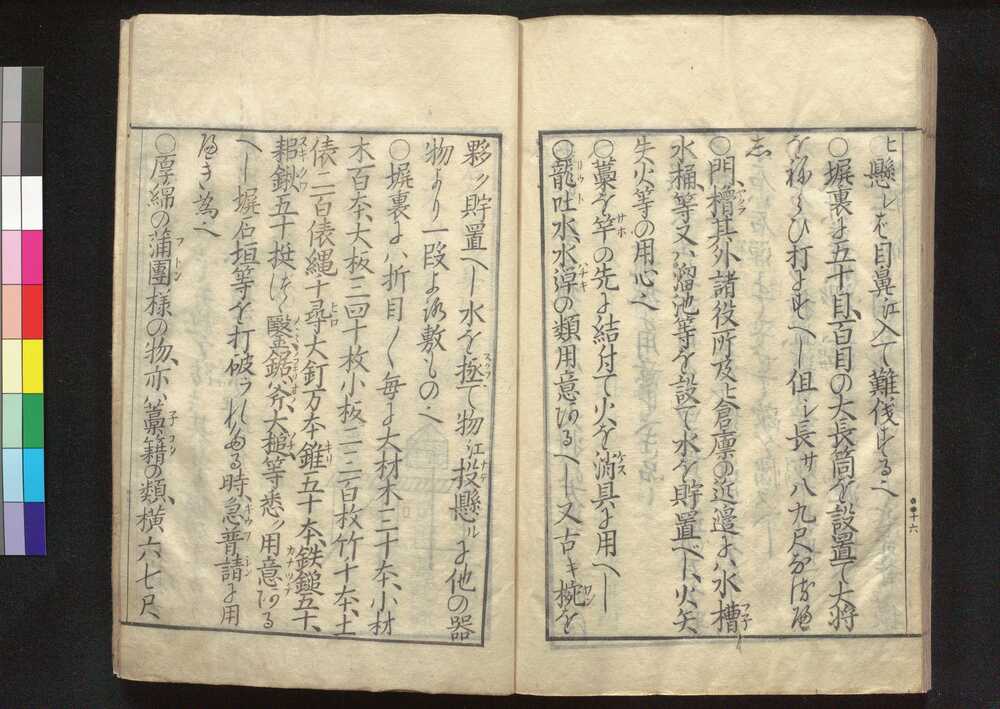 ヒ懸レバ目鼻江入て難儀する也
○塀裏よ五十目、百目の大長筒を設置て大将
をねらひ打よすべし但シ長サ八九尺なるべ
し
○門櫓其外諸役所及ヒ倉廩の近邉よハ水槽
水桶等又ハ溜池等を設て水を貯置べし、火矢、
失火等の用心也
○藁を竿の先よ結付て火を消具よ用べし
○龍吐水、水淖の類用意あるべし又古キ椀を
夥ク貯置べし水を極て物江投懸ルよ他の器
物より一段よろ敷もの也
○塀裏よハ折目〱毎よ大材木三十本、小材
木百本、大板三四十枚小板二三百枚竹十本、土
俵二百俵縄十尋大釘万本錐五十本、鉄鎚五十、
耜鍬五十挺ばく鑿鋸斧大槌等悉ク用意ある
べし塀石垣等を打破ラれたる時急普請よ用
べき為也
○厚綿の蒲團様の物、亦ハ藁籍の類、横六七尺、
十六